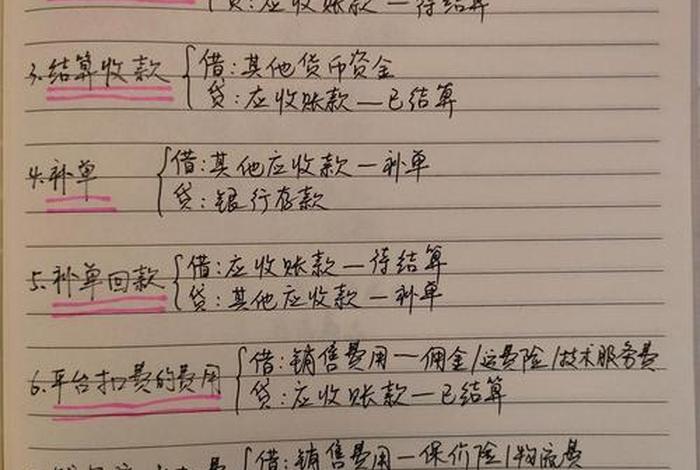 贷:应收账款—待结算
3.结算收款 借:其他货币资金
贷:应收账款—已结算
4.补单 借:其他应收款—补单
贷:银行存款
5.补单回款 借:应收账款—待结算
贷:其他应收款—补单
6.平台扣费的费用 借:销售费用—佣金/运费险/技术服务费
贷:应收账款—已结算
借:销售费用—保价险/物流费